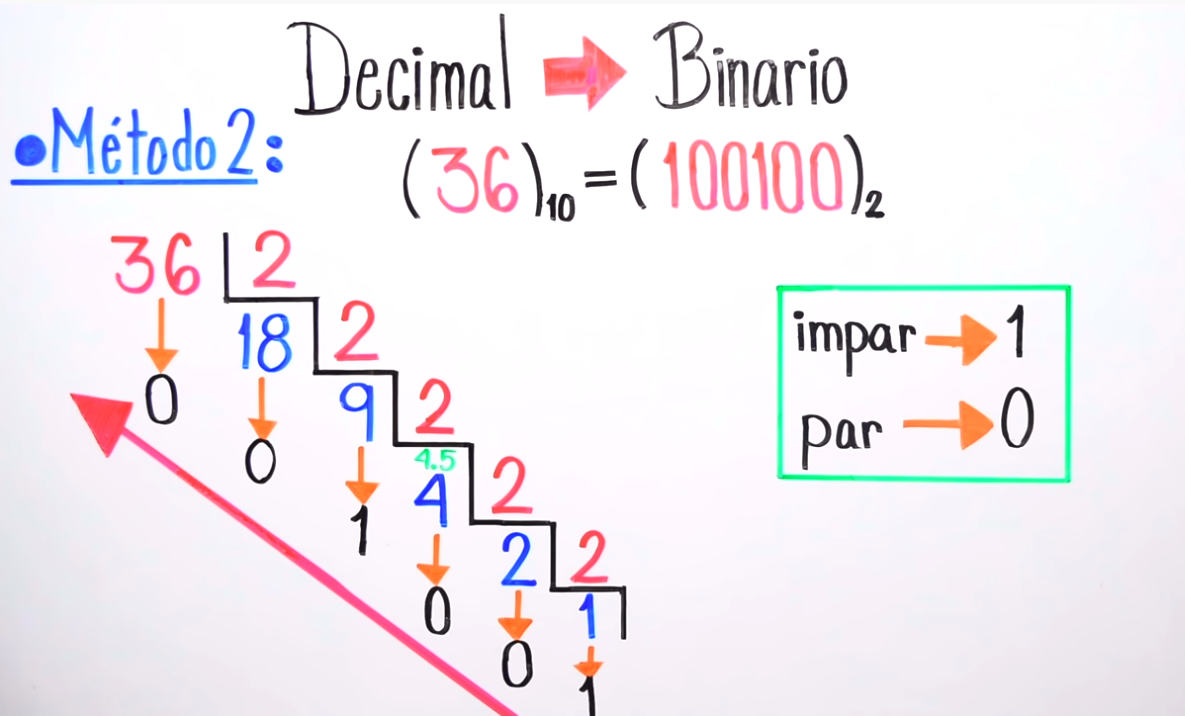 Decimal → Binario
• Método 2:
(36)10 = (100100)2
36 2
18 2
9 2
4.5
4 2
2 2
1
0
0
1
0
0
1
impar → 1
par → 0